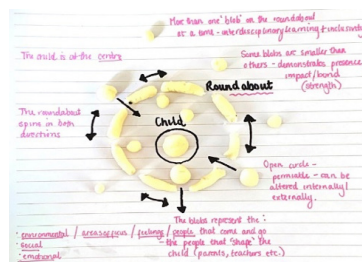 More than one 'blob' on the roundabout
at a time - interdisciplinary learning + inclusivity
The child is at the centre
Some blobs are smaller than
others - demonstrates presence
impact/bond
(strength)
Roundabout
The roundabout
spins in both
directions
Child
Open circle -
permiable - can be
altered internally/
externally.
The blobs represent the:
· environmental / breasspion / feelings / people that come and go
· social
- the people that "shape" the
· emotional
child (parents, teachers etc.)